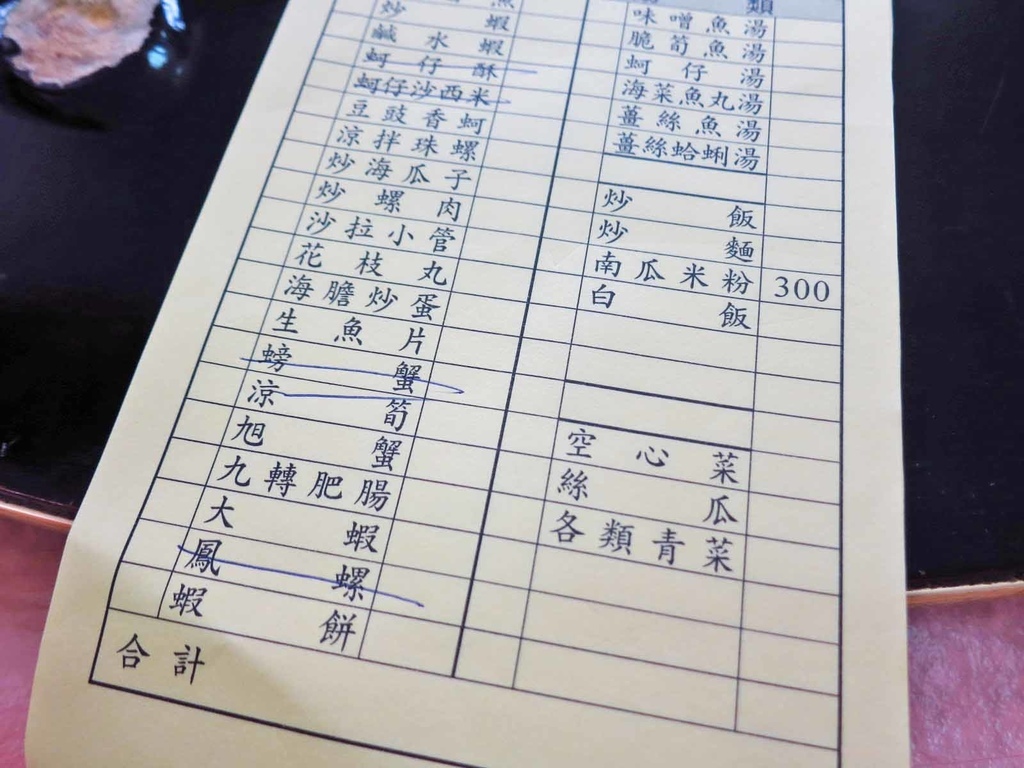 炒蝦
鹹水蝦
蚵仔酥
蚵仔沙西米
豆豉香蚵
涼拌珠螺
炒海瓜子
炒螺肉
沙拉小管
花枝丸
海膽炒蛋
生魚片
螃蟹
涼筍
旭蟹
九轉肥腸
大蝦
鳳螺
蝦餅
合計
類
味噌魚湯
脆筍魚湯
蚵仔湯
海菜魚丸湯
薑絲魚湯
薑絲蛤蜊湯
炒飯
炒麵
南瓜米粉 300
白飯
空心菜
絲瓜
各類青菜